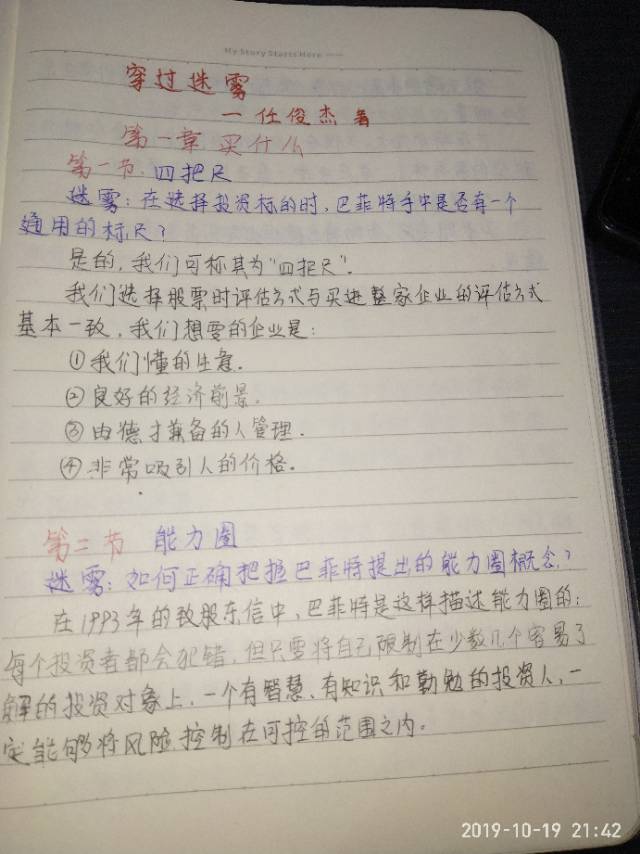 My Story Starts Here
穿过迷雾
一任俊杰著
第一章 买什么
第一节：四把尺
迷雾：在选择投资标的时，巴菲特手中是否有一个
通用的标尺？
是的，我们可称其为“四把尺”.
我们选择股票时评估方式与买进整家企业的评估方式
基本一致，我们想要的企业是：
①我们懂的生意.
②良好的经济前景.
③由德才兼备的人管理.
④非常吸引人的价格.
第二节 能力圈
迷雾：如何正确把握巴菲特提出的能力圈概念？
在1993年的致股东信中，巴菲特是这样描述能力圈的：
每个投资者都会犯错，但只要将自己限制在少数几个容易了
解的投资对象上，一个有智慧、有知识和勤勉的投资人，一
定能够将风险控制在可控的范围之内。
2019-10-19 21:42